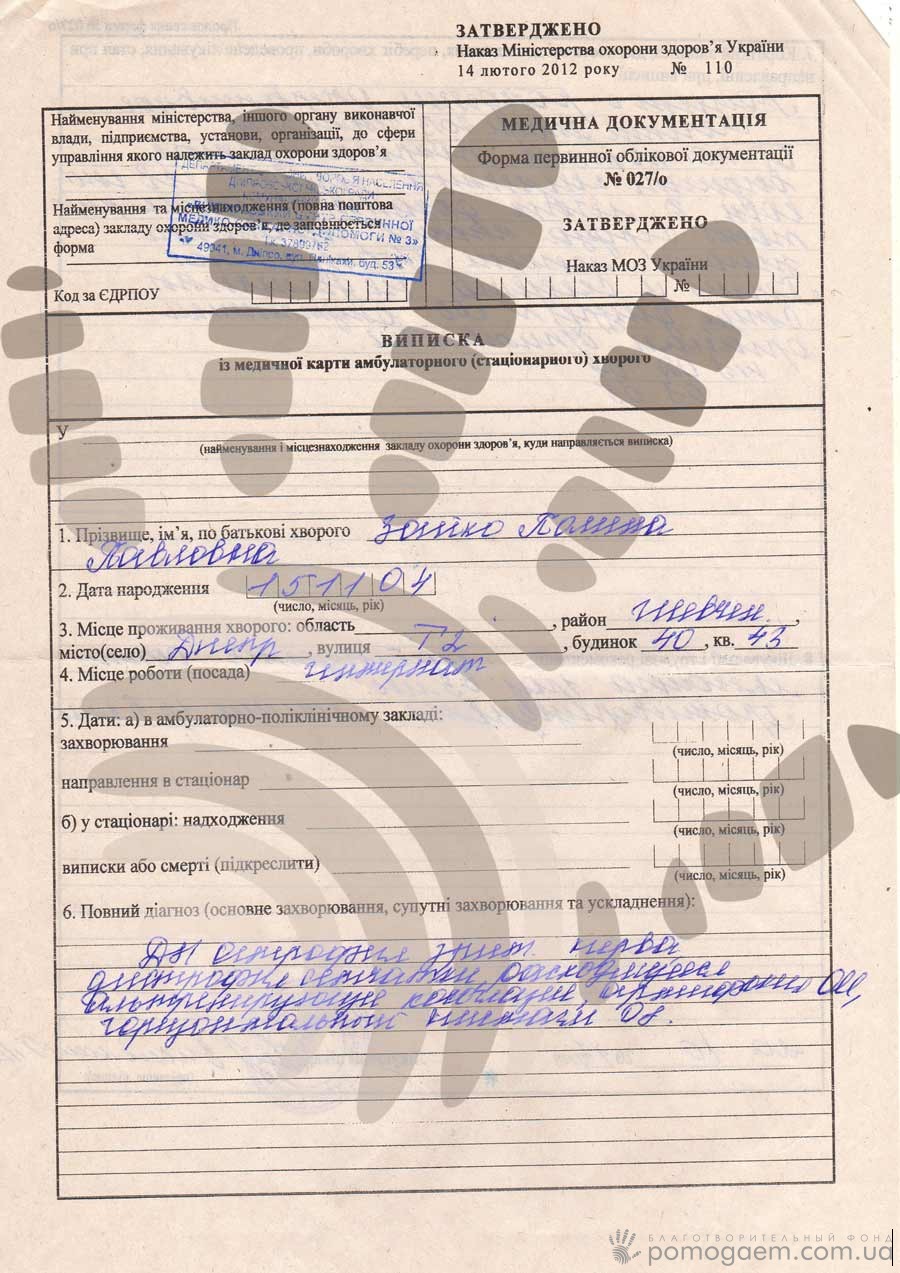 ЗАТВЕРДЖЕНО
Наказ Міністерства охорони здоров'я України
14 лютого 2012 року № 110
Найменування міністерства, іншого органу виконавчої
влади, підприємства, установи, організації, до сфери
управління якого належить заклад охорони здоров'я
Найменування та місцезнаходження (повна поштова
адреса) закладу охорони здоров'я, де заповнюється
форма
МЕДИКО ДОПОМОГИ № 3»
49041, м. Дніпро, буд. 53
Код за ЄДРПОУ
МЕДИЧНА ДОКУМЕНТАЦІЯ
Форма первинної облікової документації
№ 027/о
ЗАТВЕРДЖЕНО
Наказ МОЗ України
№
ВИПИСКА
із медичної карти амбулаторного (стаціонарного) хворого
У
(найменування і місцезнаходження закладу охорони здоров'я, куди направляється виписка)
1. Прізвище, ім'я, по батькові хворого
Павловна
2. Дата народження 151104
(число, місяць, рік)
3. Місце проживання хворого: область , район Шевчен.,
місто(село) Днепр , вулиця , будинок 40 , кв. 43
4. Місце роботи (посада) интернат
5. Дати: а) в амбулаторно-поліклінічному закладі:
захворювання
(число, місяць, рік)
направлення в стаціонар
(число, місяць, рік)
б) у стаціонарі: надходження
(число, місяць, рік)
виписки або смерті (підкреслити)
(число, місяць, рік)
6. Повний діагноз (основне захворювання, супутні захворювання та ускладнення):
атрофия зрит. нерва
дистрофия сетчатки расходящееся
альтернирующее косоглазие
горизонтальный нистагм
БЛАГОТВОРИТЕЛЬНЫЙ ФОНД
pomogaem.com.ua